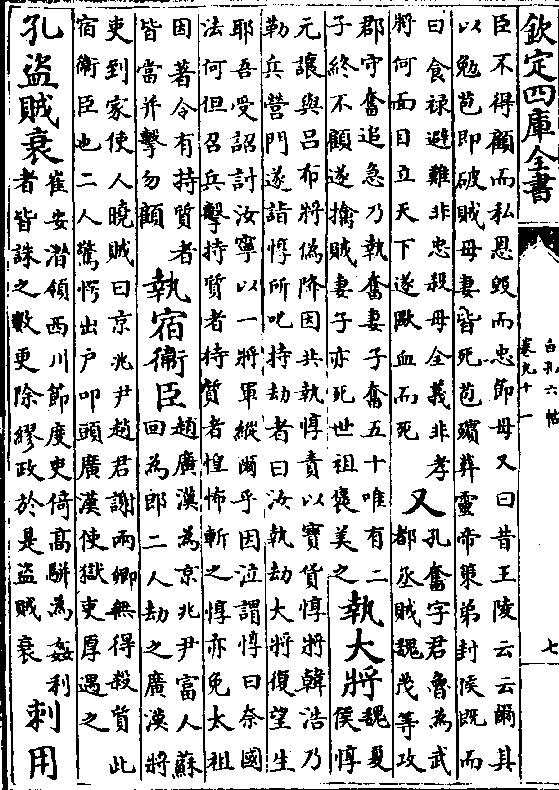 欽定四庫全書
白孔六帖
卷九十一
七
臣不得顧而私恩毁而忠節母又曰昔王陵云云爾其
以勉苞即破賊母妻皆死苞殯葬靈帝策弟封侯既而
曰食禄避難非忠殺母全義非孝
將何面目立天下遂歐血而死
又
孔奮字君魯為武
都丞賊魏茂等攻
郡守奮追急乃執奮妻子奮五十唯有二
子終不顧遂擒賊妻子亦死世祖褒美之
執大將
魏夏
侯惇
元讓與吕布將偽降因共執惇責以寶貨惇將韓浩乃
勒兵營門遂詣惇所叱持劫者曰汝執劫大將復望生
耶吾受詔討汝寧以一將軍縱爾乎因泣謂惇曰奈國
法何但召兵擊持質者持質者惶怖斬之惇亦免太祖
因著令有持質者
皆當并擊勿顧
執宿衛臣
趙廣漢為京兆尹富人蘇
回為郎二人劫之廣漢將
吏到家使人曉賊曰京兆尹趙君謝兩卿無得殺質此
宿衛臣也二人驚愕出户叩頭廣漢使獄吏厚遇之
孔盜賊衰
崔安潛領西川節度吏倚高駢為姦利
者皆誅之數更除繆政於是盜賊衰
刺用